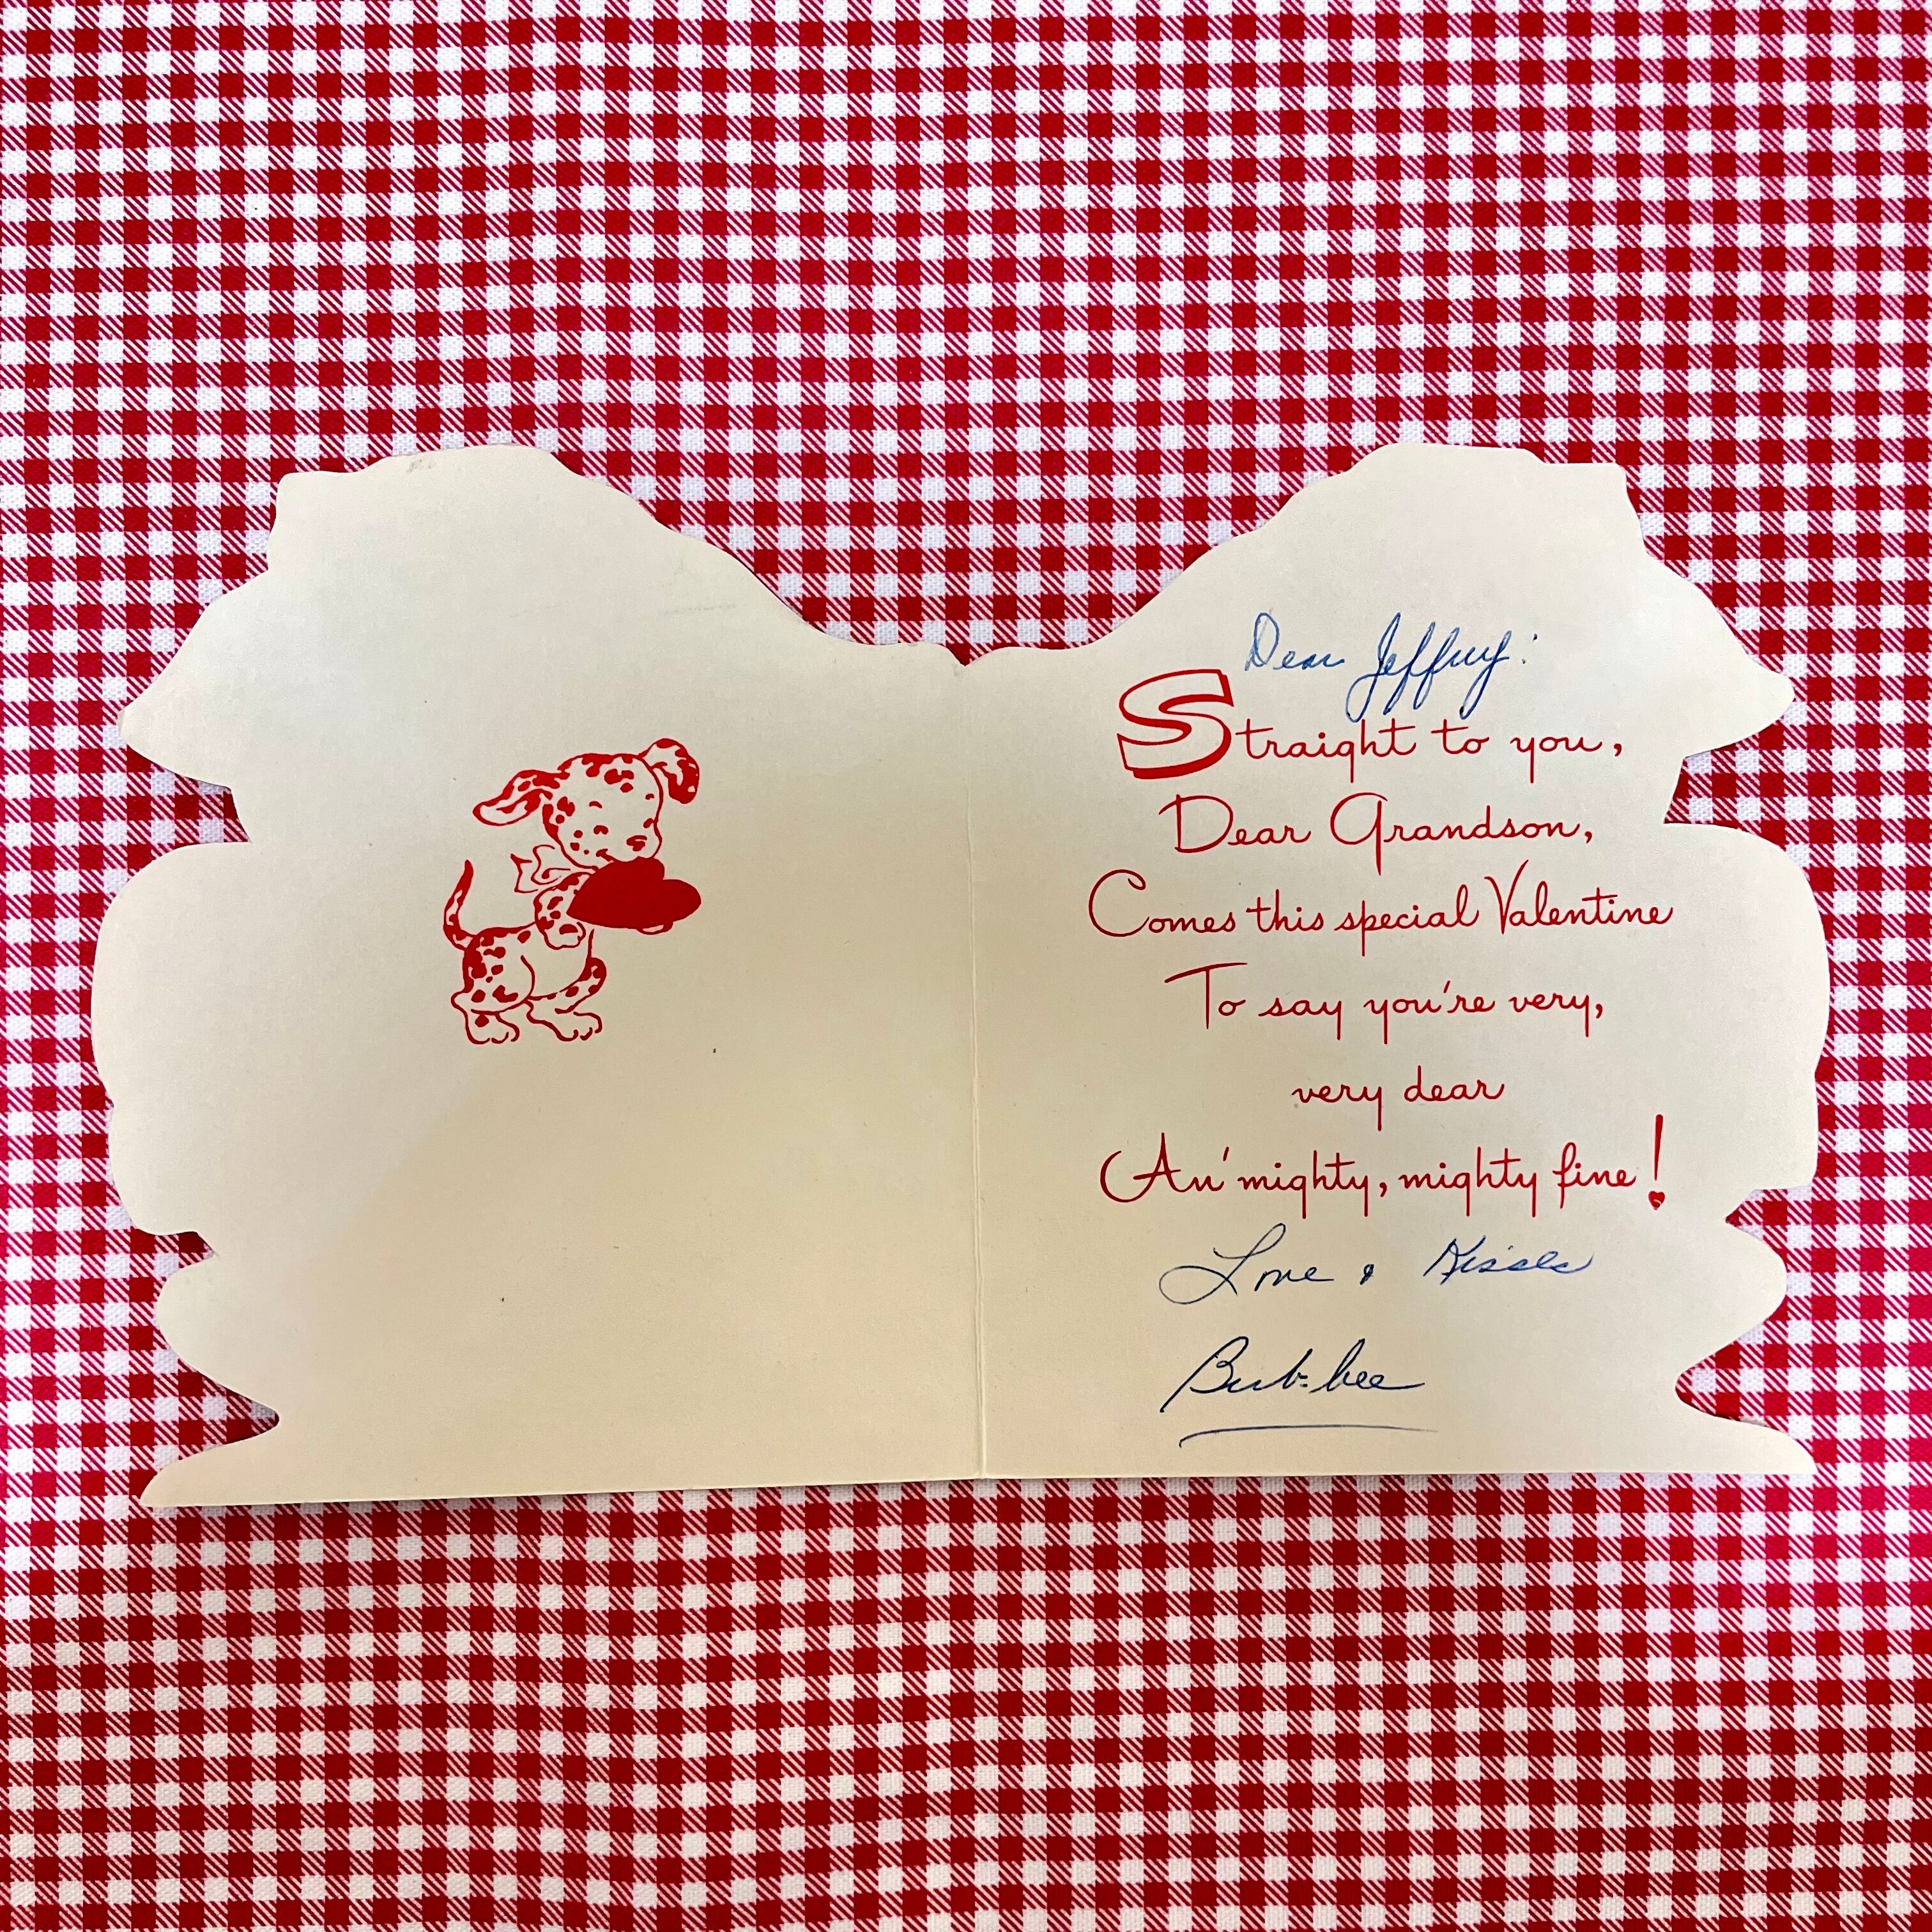 Dear Jeffrey:
Straight to you,
Dear Grandson,
Comes this special Valentine
To say you're very,
very dear
An' mighty, mighty fine!
Love & Kisses
Bub-bee